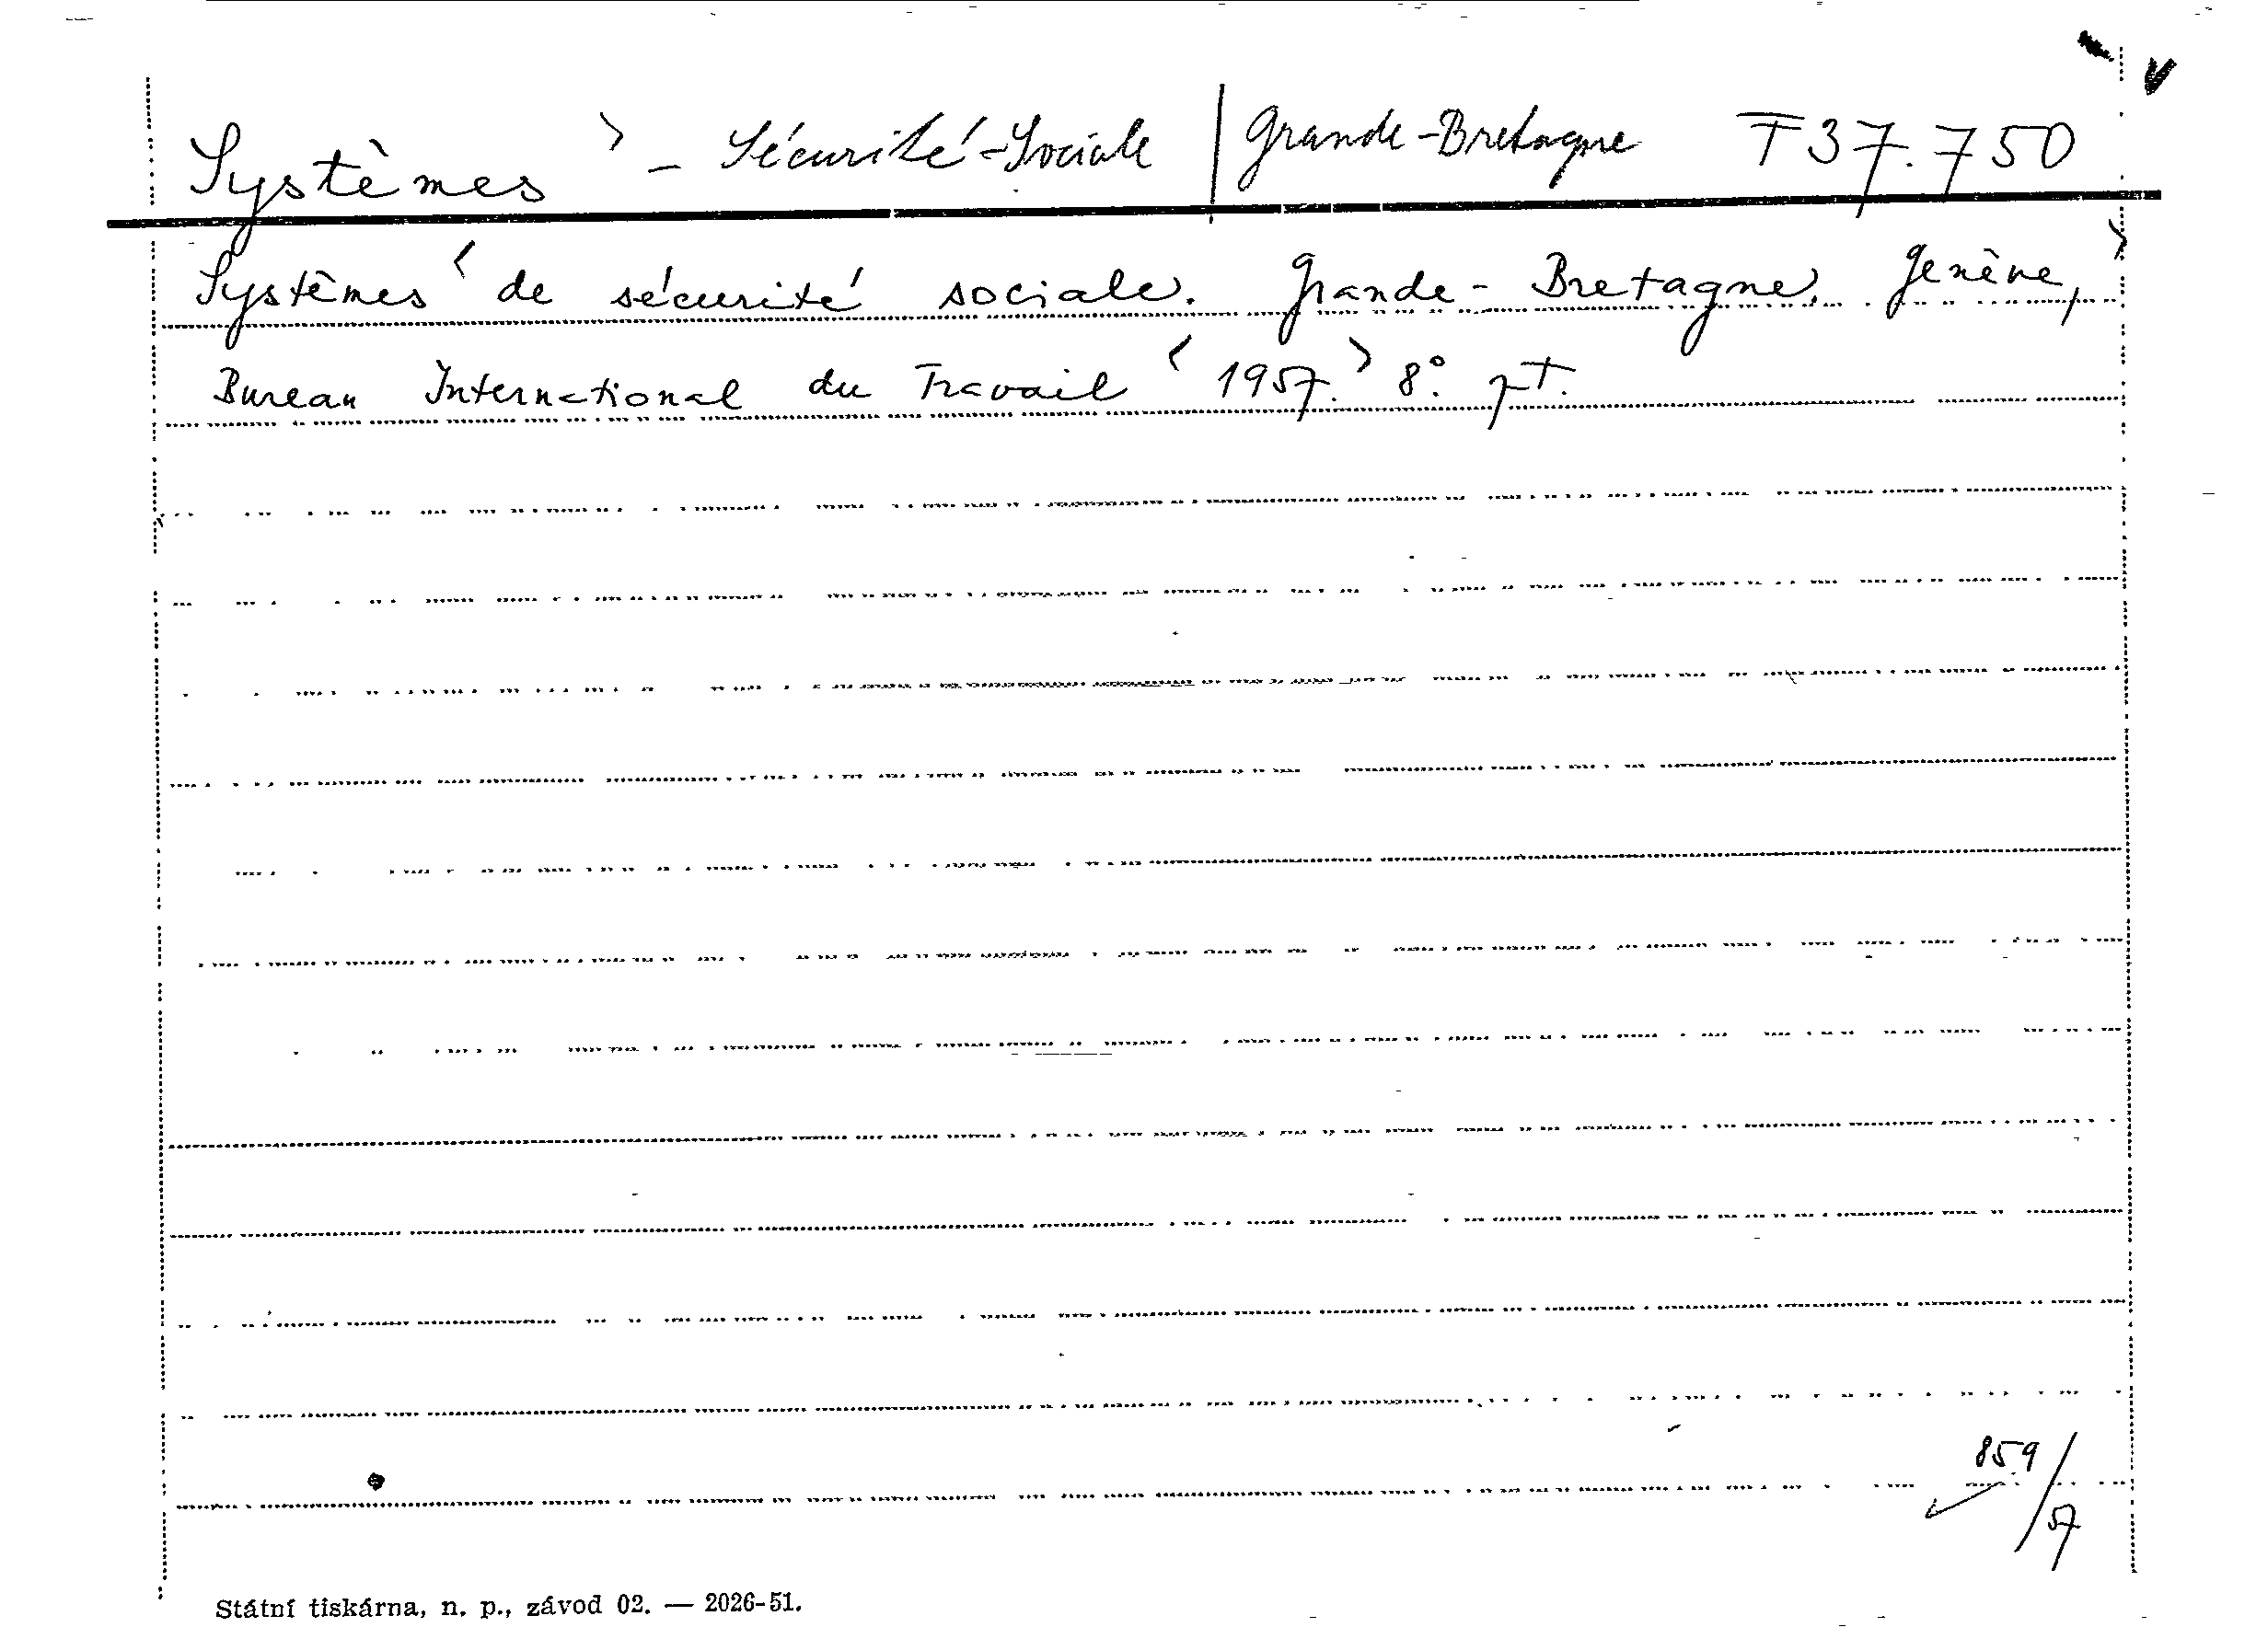 Systèmes > - Sécurité-Sociale | Grande-Bretagne F 37.750
Systèmes < de sécurité sociale. Grande-Bretagne. Genève, >
Bureau International du Travail < 1957. > 8°. pt.
859/57
Státní tiskárna, n. p., závod 02. — 2026-51.